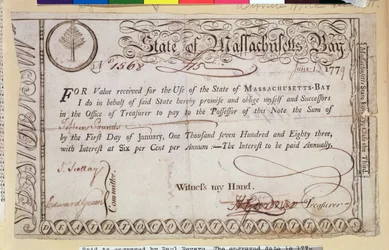 State of Massachusetts Bay
No 7568 £15 June 1. 1779
FOR Value received for the Use of the State of MASSACHUSETTS-BAY
I do in behalf of said State hereby promise and oblige myself and Successors
in the Office of Treasurer to pay to the Possessor of this Note the Sum of
Fifteen Pounds
by the First Day of January, One Thousand seven Hundred and Eighty three,
with Interest at Six per Cent per Annum:—The Interest to be paid Annually.
Witness my Hand.
Committee.
Treasurer
Said to engraved by Paul Revere. The engraved date is